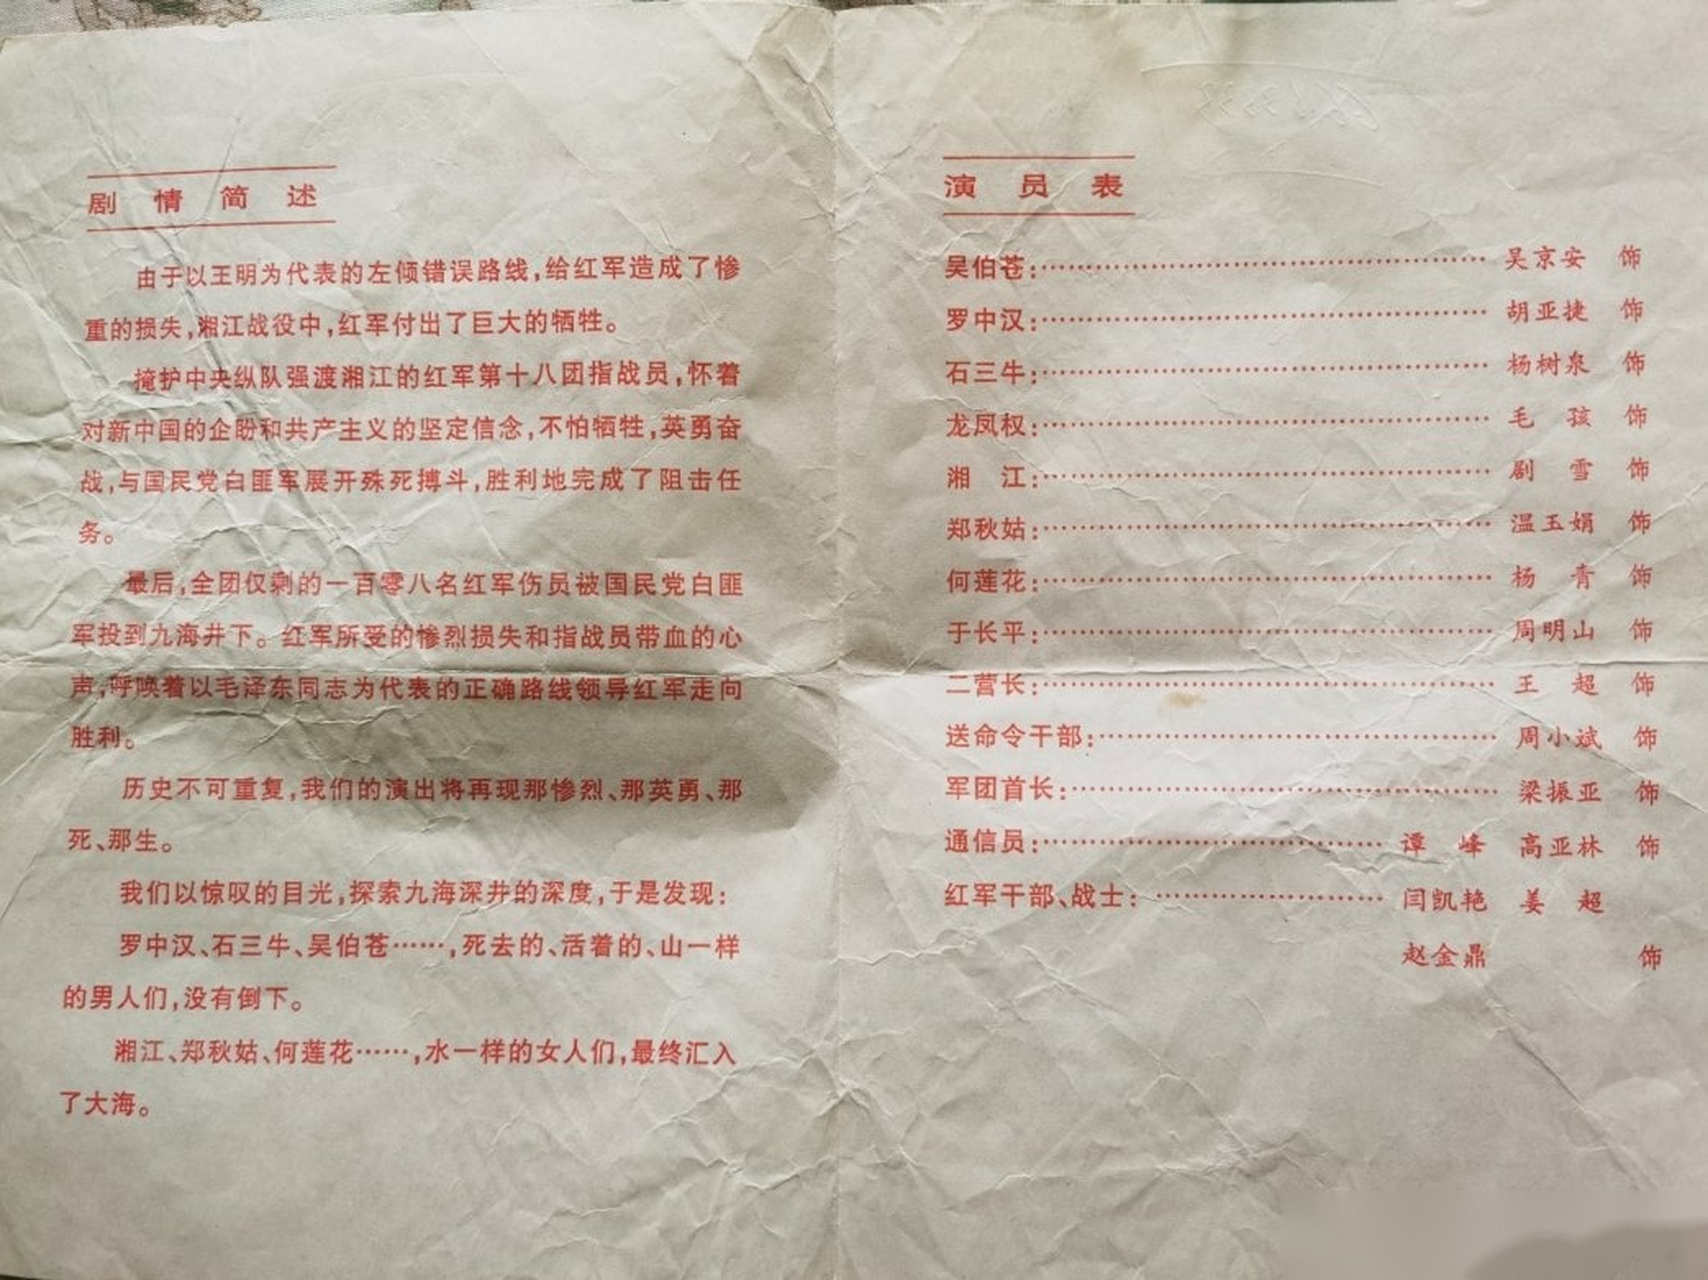 剧情简述
由于以王明为代表的左倾错误路线,给红军造成了惨
重的损失,湘江战役中,红军付出了巨大的牺牲。
掩护中央纵队强渡湘江的红军第十八团指战员,怀着
对新中国的企盼和共产主义的坚定信念,不怕牺牲,英勇奋
战,与国民党白匪军展开殊死搏斗,胜利地完成了阻击任
务。
最后,全团仅剩的一百零八名红军伤员被国民党白匪
军投到九海井下。红军所受的惨烈损失和指战员带血的心
声,呼唤着以毛泽东同志为代表的正确路线领导红军走向
胜利。
历史不可重复,我们的演出将再现那惨烈、那英勇、那
死、那生。
我们以惊叹的目光,探索九海深井的深度,于是发现:
罗中汉、石三牛、吴伯苍……,死去的、活着的、山一样
的男人们,没有倒下。
湘江、郑秋姑、何莲花……,水一样的女人们,最终汇入
了大海。
演员表
吴伯苍:……吴京安 饰
罗中汉:……胡亚捷 饰
石三牛:……杨树泉 饰
龙凤权:……毛 孩 饰
湘 江:……剧 雪 饰
郑秋姑:……温玉娟 饰
何莲花:……杨 青 饰
于长平:……周明山 饰
二营长:……王 超 饰
送命令干部:……周小斌 饰
军团首长:……梁振亚 饰
通信员:……谭 峰 高亚林 饰
红军干部、战士:……闫凯艳 姜 超
赵金鼎 饰